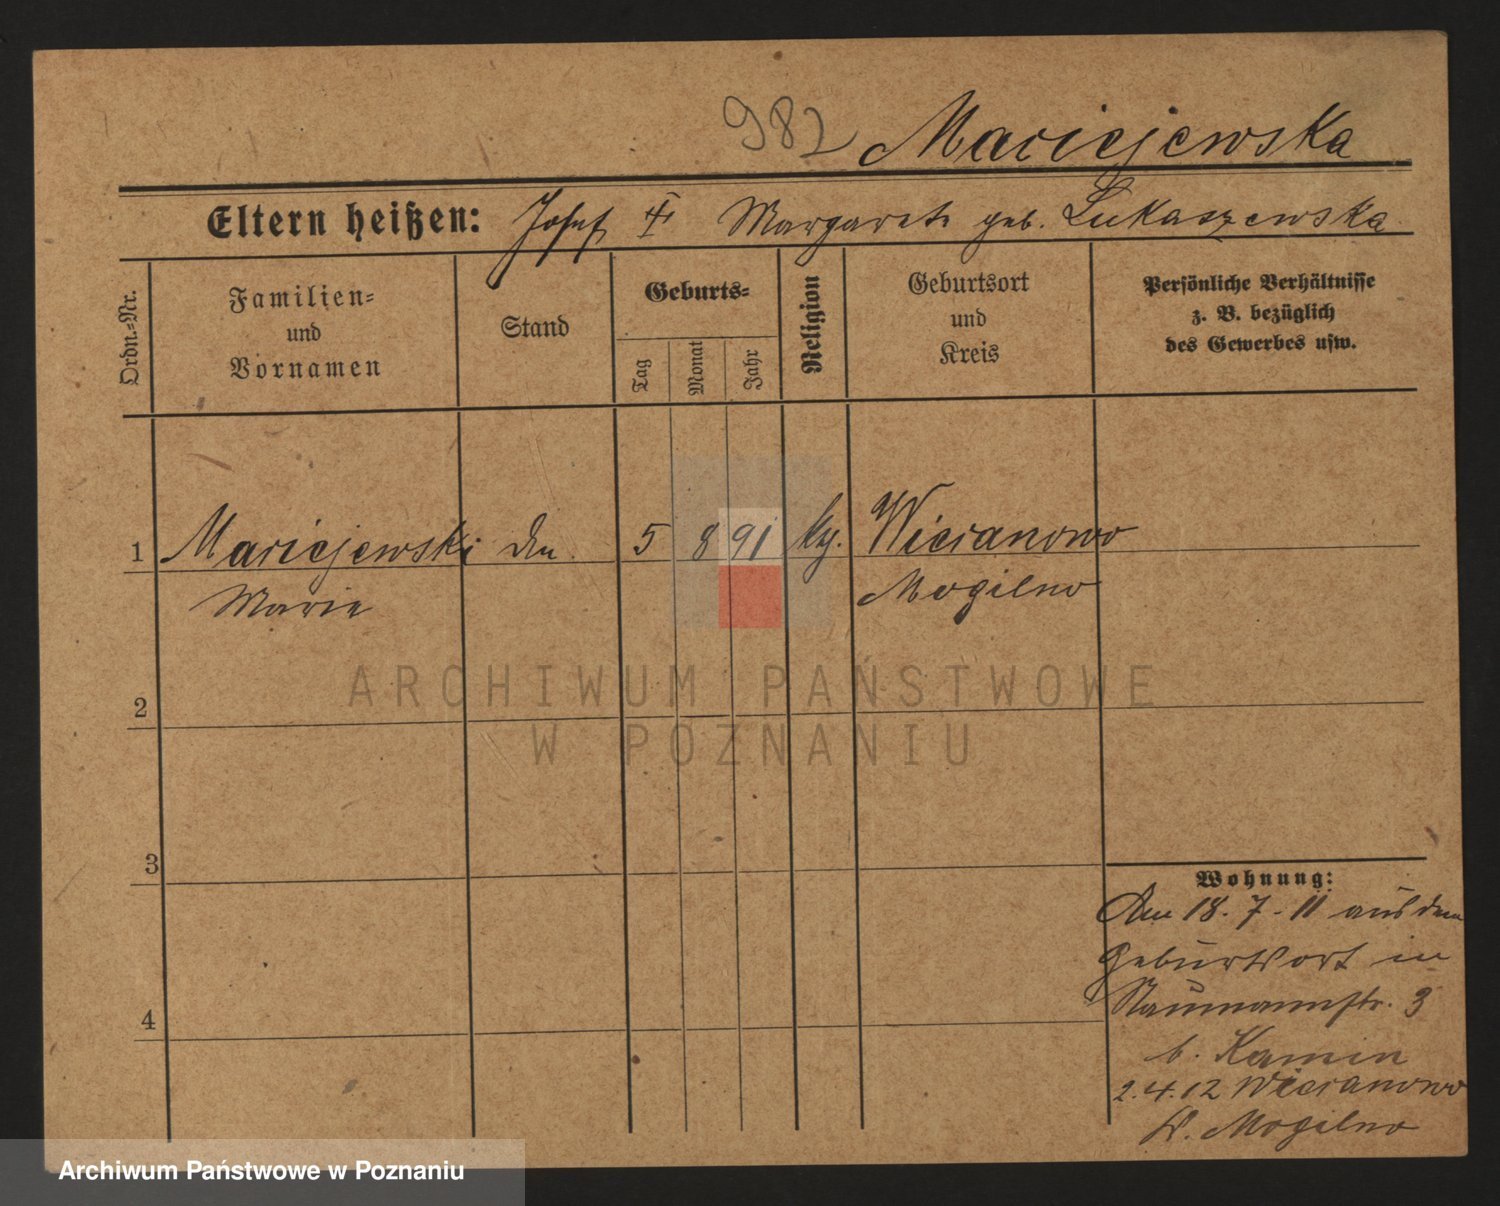 982 Maciejewska
Eltern heißen: Josef † Margareth geb. Lukaszewska
Ordn.-Nr.
Familien-
und
Vornamen
Stand
Geburts-
Tag
Monat
Jahr
Religion
Geburtsort
und
Kreis
Persönliche Verhältnisse
z. B. bezüglich
des Gewerbes usw.
1 Maciejewski 5 8 91 Wiecanowo
Marie Mogilno
2
3
4
Wohnung:
Am 18.7.11 aus dem
Geburtsort in
Naumannstr. 3
b. Kamin
2.4.12 Wiecanowo
Kr. Mogilno
ARCHIWUM PAŃSTWOWE
W POZNANIU
Archiwum Państwowe w Poznaniu